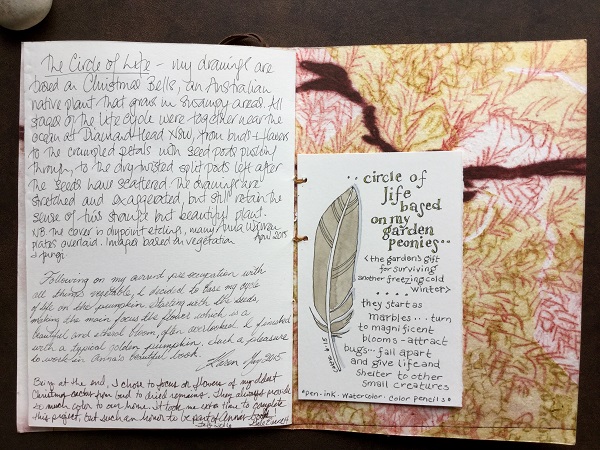 The Circle of Life - my drawings are
based on Christmas Bells, an Australian
native plant that grows in swampy areas. All
stages of the life cycle were together near the
ocean at Diamond Head NSW, from buds + flowers
to the crumpled petals with seed pods pushing
through, to the dry twisted split pods left after
the seeds have scattered. The drawings are
stretched and exaggerated, but still retain the
sense of this strange but beautiful plant.
NB the cover is drypoint etching, many
plates overlaid. Images based on vegetation April 2015
+ fungi.
Following on my current preoccupation with
all things vegetable, I decided to base my cycle
of life on the pumpkin starting with the seeds,
making the main focus the flower which is a
beautiful and ethereal bloom, often overlooked. I finished
with a typical golden pumpkin. Such a pleasure
to work in Anna's beautiful book. 2015
Being at the end, I chose to focus on flowers of my oldest
Christmas cactus from bud to dried remains. They always provide
so much color to our home. It took me extra time to complete
this project, but such an honor to be part of Anna's book.
circle of
life
based
on my
garden
peonies
<the garden's gift
for surviving
another freezing cold
winter>
they start as
marbles... turn
to magnificent
blooms - attract
bugs... fall apart
and give life and
shelter to other
small creatures
•pen•ink•watercolor•color pencils•